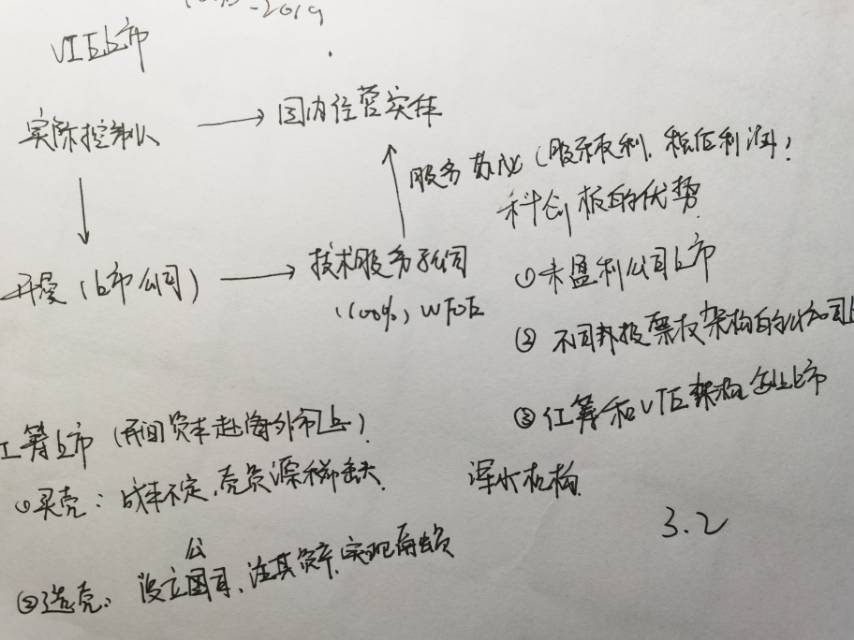 -2019
VIE上市
实际控制人 → 国内经营实体
服务协议（股东权利，转征利润）：
科创板的优势
开曼（上市公司） → 技术服务公司
（100%）WFOE
①未盈利公司上市
②不同投票权架构的公司上
③红筹和VIE架构企业上市
红筹上市（ 资本赴海外市上）
①买壳：成本不定，壳资源稀缺
浑水机构
3.2
②造壳：设立公司，注其资产，实现